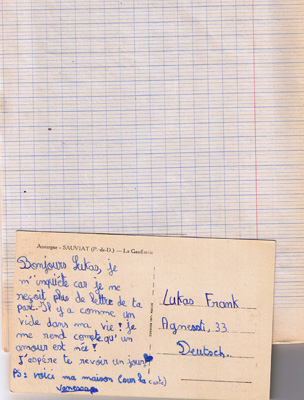 Auvergne - SAUVIAT (P.-de-D.) — La Gaullerie
Bonjours Lukas, je
m'inquiète car je me
reçoit plus de lettre de ta
part. Il y a comme un
vide dans ma vie ! Je
me rend compte qu'un
amour est née !
J'espère te revoir un jour
PS : voici ma maison (sur la carte)
vanessa
Lukas Frank
Agnessti, 33
Deutsch.